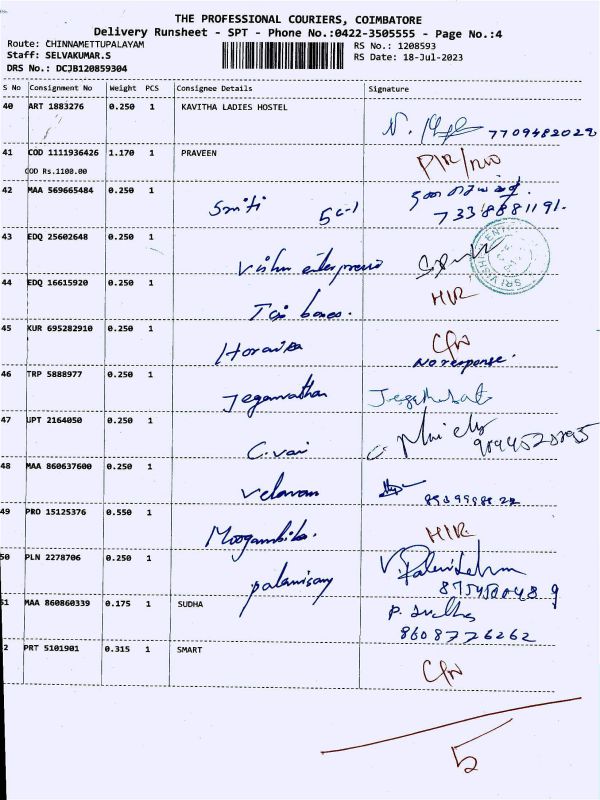 THE PROFESSIONAL COURIERS, COIMBATORE
Delivery Runsheet - SPT - Phone No.:0422-3505555 - Page No.:4
Route: CHINNAMETTUPALAYAM
Staff: SELVAKUMAR.S
DRS No.: DCJB120859304
RS No.: 1208593
RS Date: 18-Jul-2023
S No Consignment No Weight PCS Consignee Details Signature
40 ART 1883276 0.250 1 KAVITHA LADIES HOSTEL
7709482022
41 COD 1111936426 1.170 1 PRAVEEN
COD Rs.1100.00
42 MAA 569665484 0.250 1
Smiti
7338881191.
43 EDQ 25602648 0.250 1
Vishnu enterprises
44 EDQ 16615920 0.250 1
HIR
45 KUR 695282910 0.250 1
No response.
46 TRP 5888977 0.250 1
Jegannathan
47 UPT 2164050 0.250 1
48 MAA 860637600 0.250 1
Velavan
49 PRO 15125376 0.550 1
Moogambika.
HIR
50 PLN 2278706 0.250 1
palanisamy
51 MAA 860860339 0.175 1 SUDHA
P. Sudha
8608776262
2 PRT 5101901 0.315 1 SMART
5